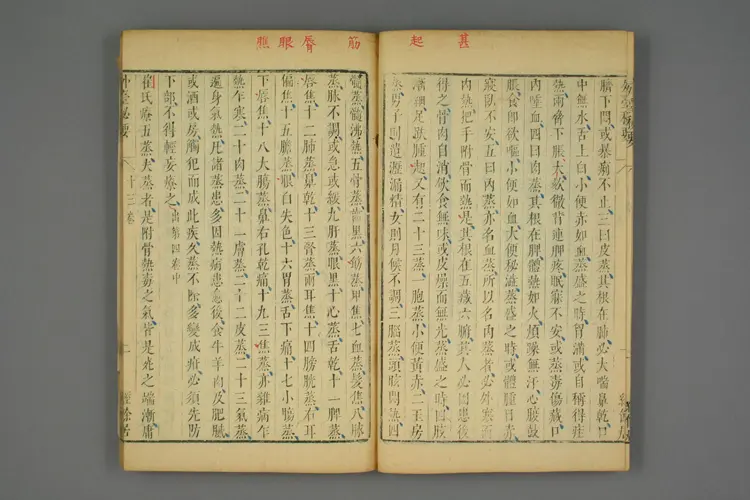 甚
起
臍下悶或暴痢不止三曰皮蒸其根在肺必大喘鼻乾口
中無水舌上白小便赤如血蒸盛之時胸滿或自稱得注
熱兩脅下脹大欬徹背連胛疼眠寐不安或蒸毒傷藏口
內唾血四曰肉蒸其根在脾體熱如火煩躁無汗心腹鼓
脹食即欲嘔小便如血大便秘澁蒸盛之時或體腫目赤
寢臥不安五曰內蒸亦名血蒸所以名內蒸者必外寒而
內熱把手附骨而熱是其根在五藏六腑其人必因患後
得之骨肉自消飲食無味或皮燥而無光蒸盛之時四肢
漸細足趺腫起又有二十三蒸一胞蒸小便黃赤二玉房
蒸男子則遺瀝漏精女則月候不調三腦蒸頭眩悶熱四
筋
脣
眼
髓蒸髓沸熱五骨蒸齒黑六筋蒸甲焦七血蒸髮焦八脉
蒸脉不調或急或緩九肝蒸眼黑十心蒸舌乾十一脾蒸
脣焦十二肺蒸鼻乾十三腎蒸兩耳焦十四膀胱蒸右耳
偏焦十五膽蒸眼白失色十六胃蒸舌下痛十七小腸蒸
下脣焦十八大腸蒸鼻右孔乾痛十九三焦蒸亦雜病乍
熱乍寒二十肉蒸二十一膚蒸二十二皮蒸二十三氣蒸
遍身氣熱凡諸蒸患多因熱病患愈後食牛羊肉及肥膩
或酒或房觸犯而成此疾久蒸不除多變成疳必須先防
下部不得輕妄療之出第四卷中
崔氏療五蒸夫蒸者是附骨熱毒之氣皆是死之端漸庸
外臺秘要
十三卷
二
經餘居